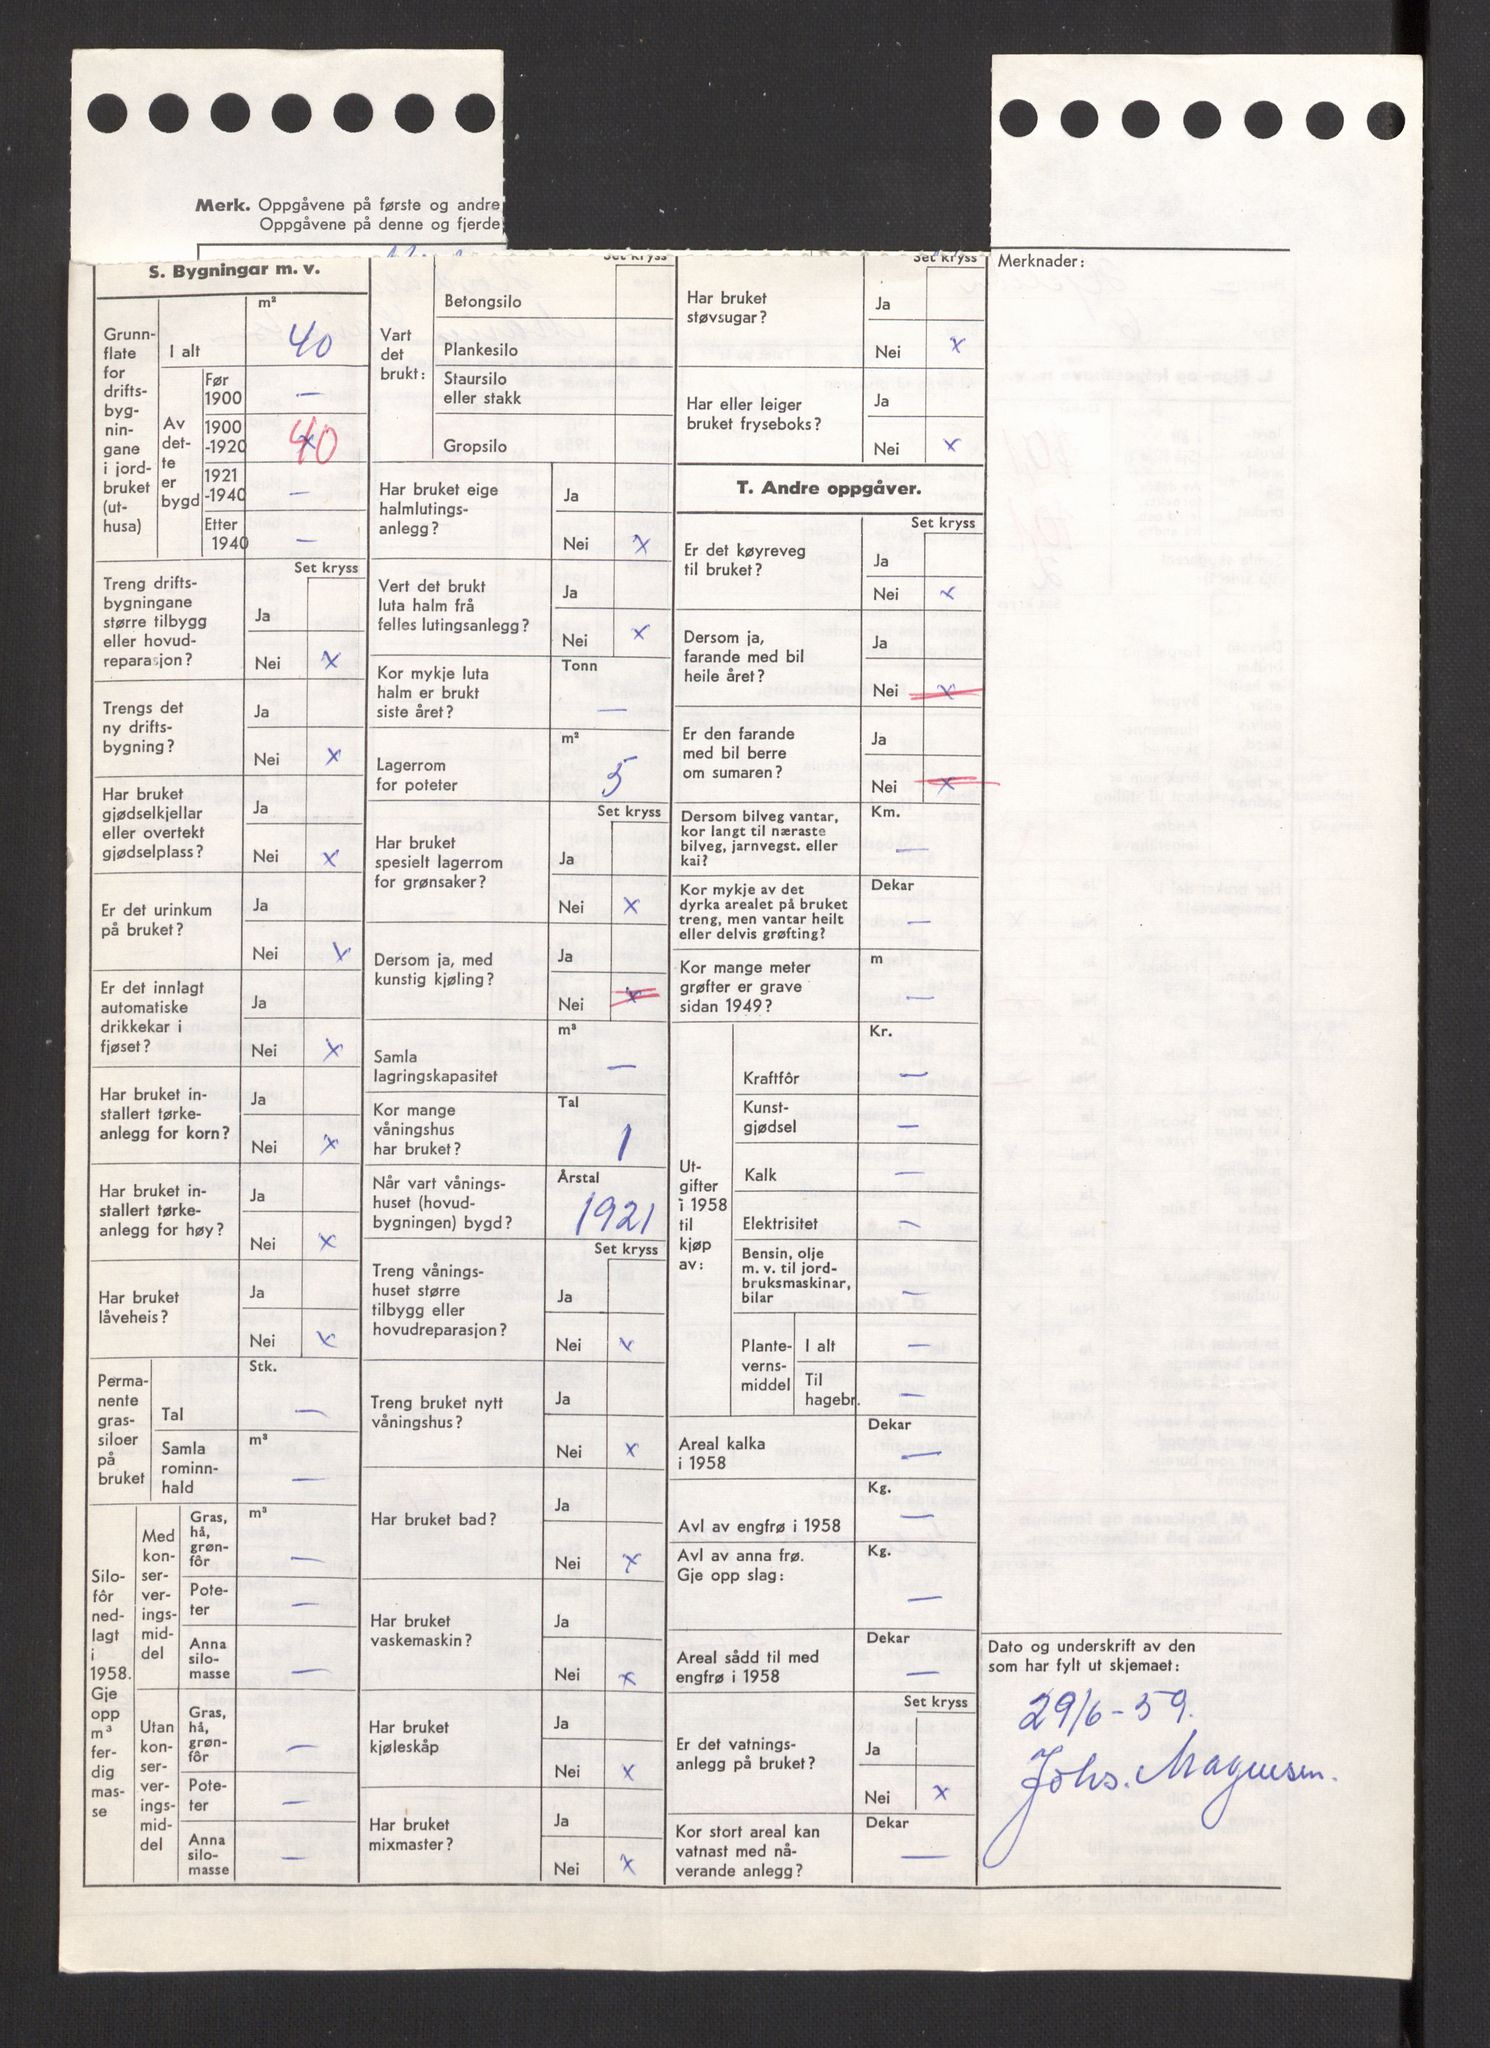 Merk. Oppgåvene på første og andre
Oppgåvene på denne og fjerde
S. Bygningar m. v.
Grunn-
flate
for
drifts-
byg-
nin-
gane
i jord-
bruket
(ut-
husa)
m²
I alt 40
Av
det-
te
er
bygd
Før
1900 —
1900
-1920 x 40
1921
-1940 —
Etter
1940 —
Set kryss
Treng drifts-
bygningane
større tilbygg
eller hovud-
reparasjon?
Ja
Nei x
Trengs det
ny drifts-
bygning?
Ja
Nei x
Har bruket
gjødselkjellar
eller overtekt
gjødselplass?
Ja
Nei x
Er det urinkum
på bruket?
Ja
Nei x
Er det innlagt
automatiske
drikkekar i
fjøset?
Ja
Nei x
Har bruket in-
stallert tørke-
anlegg for korn?
Ja
Nei x
Har bruket in-
stallert tørke-
anlegg for høy?
Ja
Nei x
Har bruket
låveheis?
Ja
Nei x
Perma-
nente
gras-
siloer
på
bruket
Stk.
Tal —
m³
Samla
rominn-
hald —
Silo-
fôr
ned-
lagt
i
1958.
Gje
opp
m³
fer-
dig
mas-
se
Med
kon-
ser-
ver-
ings-
mid-
del
m³
Gras,
hå,
grøn-
fôr —
Pote-
ter —
Anna
silo-
masse —
Utan
kon-
ser-
ver-
ings-
mid-
del
Gras,
hå,
grøn-
fôr —
Pote-
ter —
Anna
silo-
masse —
Vart
det
brukt:
Set kryss
Betongsilo
Plankesilo
Staursilo
eller stakk
Gropsilo
Har bruket eige
halmlutings-
anlegg?
Ja
Nei x
Vert det brukt
luta halm frå
felles lutingsanlegg?
Ja
Nei x
Kor mykje luta
halm er brukt
siste året?
Tonn
—
Lagerrom
for poteter
m²
5
Set kryss
Har bruket
spesielt lagerrom
for grønsaker?
Ja
Nei x
Dersom ja, med
kunstig kjøling?
Ja
Nei x
Samla
lagringskapasitet
m³
—
Kor mange
våningshus
har bruket?
Tal
1
Når vart vånings-
huset (hovud-
bygningen) bygd?
Årstal
1921
Set kryss
Treng vånings-
huset større
tilbygg eller
hovudreparasjon?
Ja
Nei x
Treng bruket nytt
våningshus?
Ja
Nei x
Har bruket bad?
Ja
Nei x
Har bruket
vaskemaskin?
Ja
Nei x
Har bruket
kjøleskåp
Ja
Nei x
Har bruket
mixmaster?
Ja
Nei x
Set kryss
Har bruket
støvsugar?
Ja
Nei x
Har eller leiger
bruket fryseboks?
Ja
Nei x
T. Andre oppgåver.
Set kryss
Er det køyreveg
til bruket?
Ja
Nei x
Dersom ja,
farande med bil
heile året?
Ja
Nei x
Er den farande
med bil berre
om sumaren?
Ja
Nei x
Dersom bilveg vantar,
kor langt til næraste
bilveg, jarnvegst. eller
kai?
Km.
—
Kor mykje av det
dyrka arealet på bruket
treng, men vantar heilt
eller delvis grøfting?
Dekar
—
Kor mange meter
grøfter er grave
sidan 1949?
m
—
Ut-
gifter
i 1958
til
kjøp
av:
Kr.
Kraftfôr —
Kunst-
gjødsel —
Kalk —
Elektrisitet —
Bensin, olje
m. v. til jord-
bruksmaskinar,
bilar —
Plante-
verns-
middel
I alt —
Til
hagebr. —
Areal kalka
i 1958
Dekar
—
Avl av engfrø i 1958
Kg.
—
Avl av anna frø.
Gje opp slag:
Kg.
—
Areal sådd til med
engfrø i 1958
Dekar
—
Set kryss
Er det vatnings-
anlegg på bruket?
Ja
Nei x
Kor stort areal kan
vatnast med nå-
verande anlegg?
Dekar
—
Merknader:
Dato og underskrift av den
som har fylt ut skjemaet:
29/6-59.
Johs. Magnusen.